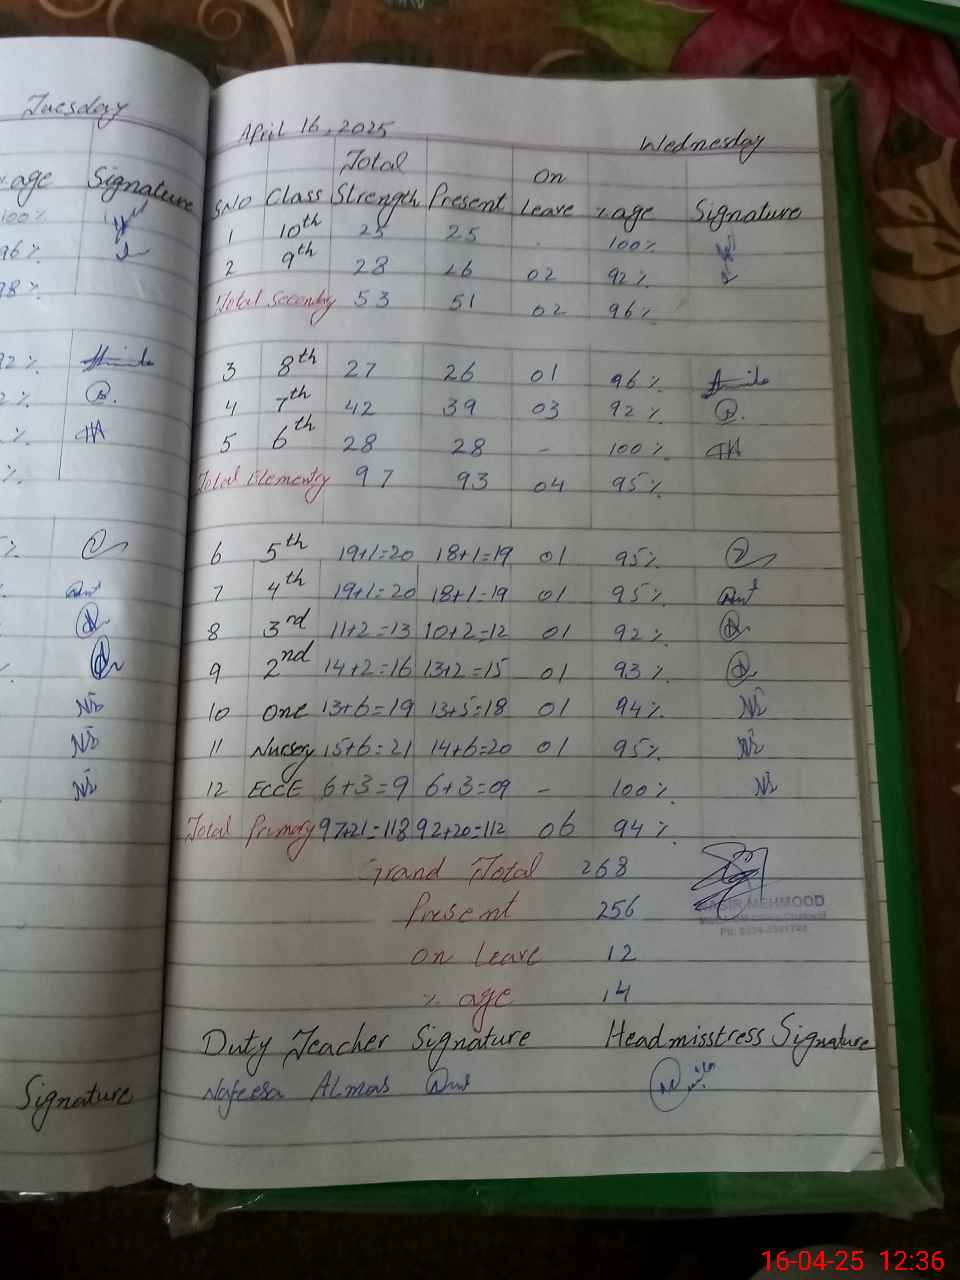 Tuesday
age Signature
100%
96%
98%
92%
2%
%
%
%
Signature
April 16, 2025 Wednesday
S.No Class Total Strength Present On Leave %age Signature
1 10th 25 25 . 100%
2 9th 28 26 02 92%
Total Secondry 53 51 02 96%
3 8th 27 26 01 96%
4 7th 42 39 03 92%
5 6th 28 28 - 100%
Total Elementry 97 93 04 95%
6 5th 19+1=20 18+1=19 01 95%
7 4th 19+1=20 18+1=19 01 95%
8 3rd 11+2=13 10+2=12 01 92%
9 2nd 14+2=16 13+2=15 01 93%
10 One 13+6=19 13+5=18 01 94%
11 Nursery 15+6=21 14+6=20 01 95%
12 ECCE 6+3=9 6+3=09 - 100%
Total Primary 97+21=118 92+20=112 06 94%
Grand Total 268
Present 256
On Leave 12
% age 14
MEHMOOD
Duty Teacher Signature Headmisstress Signature
Nafeesa Almas
16-04-25 12:36